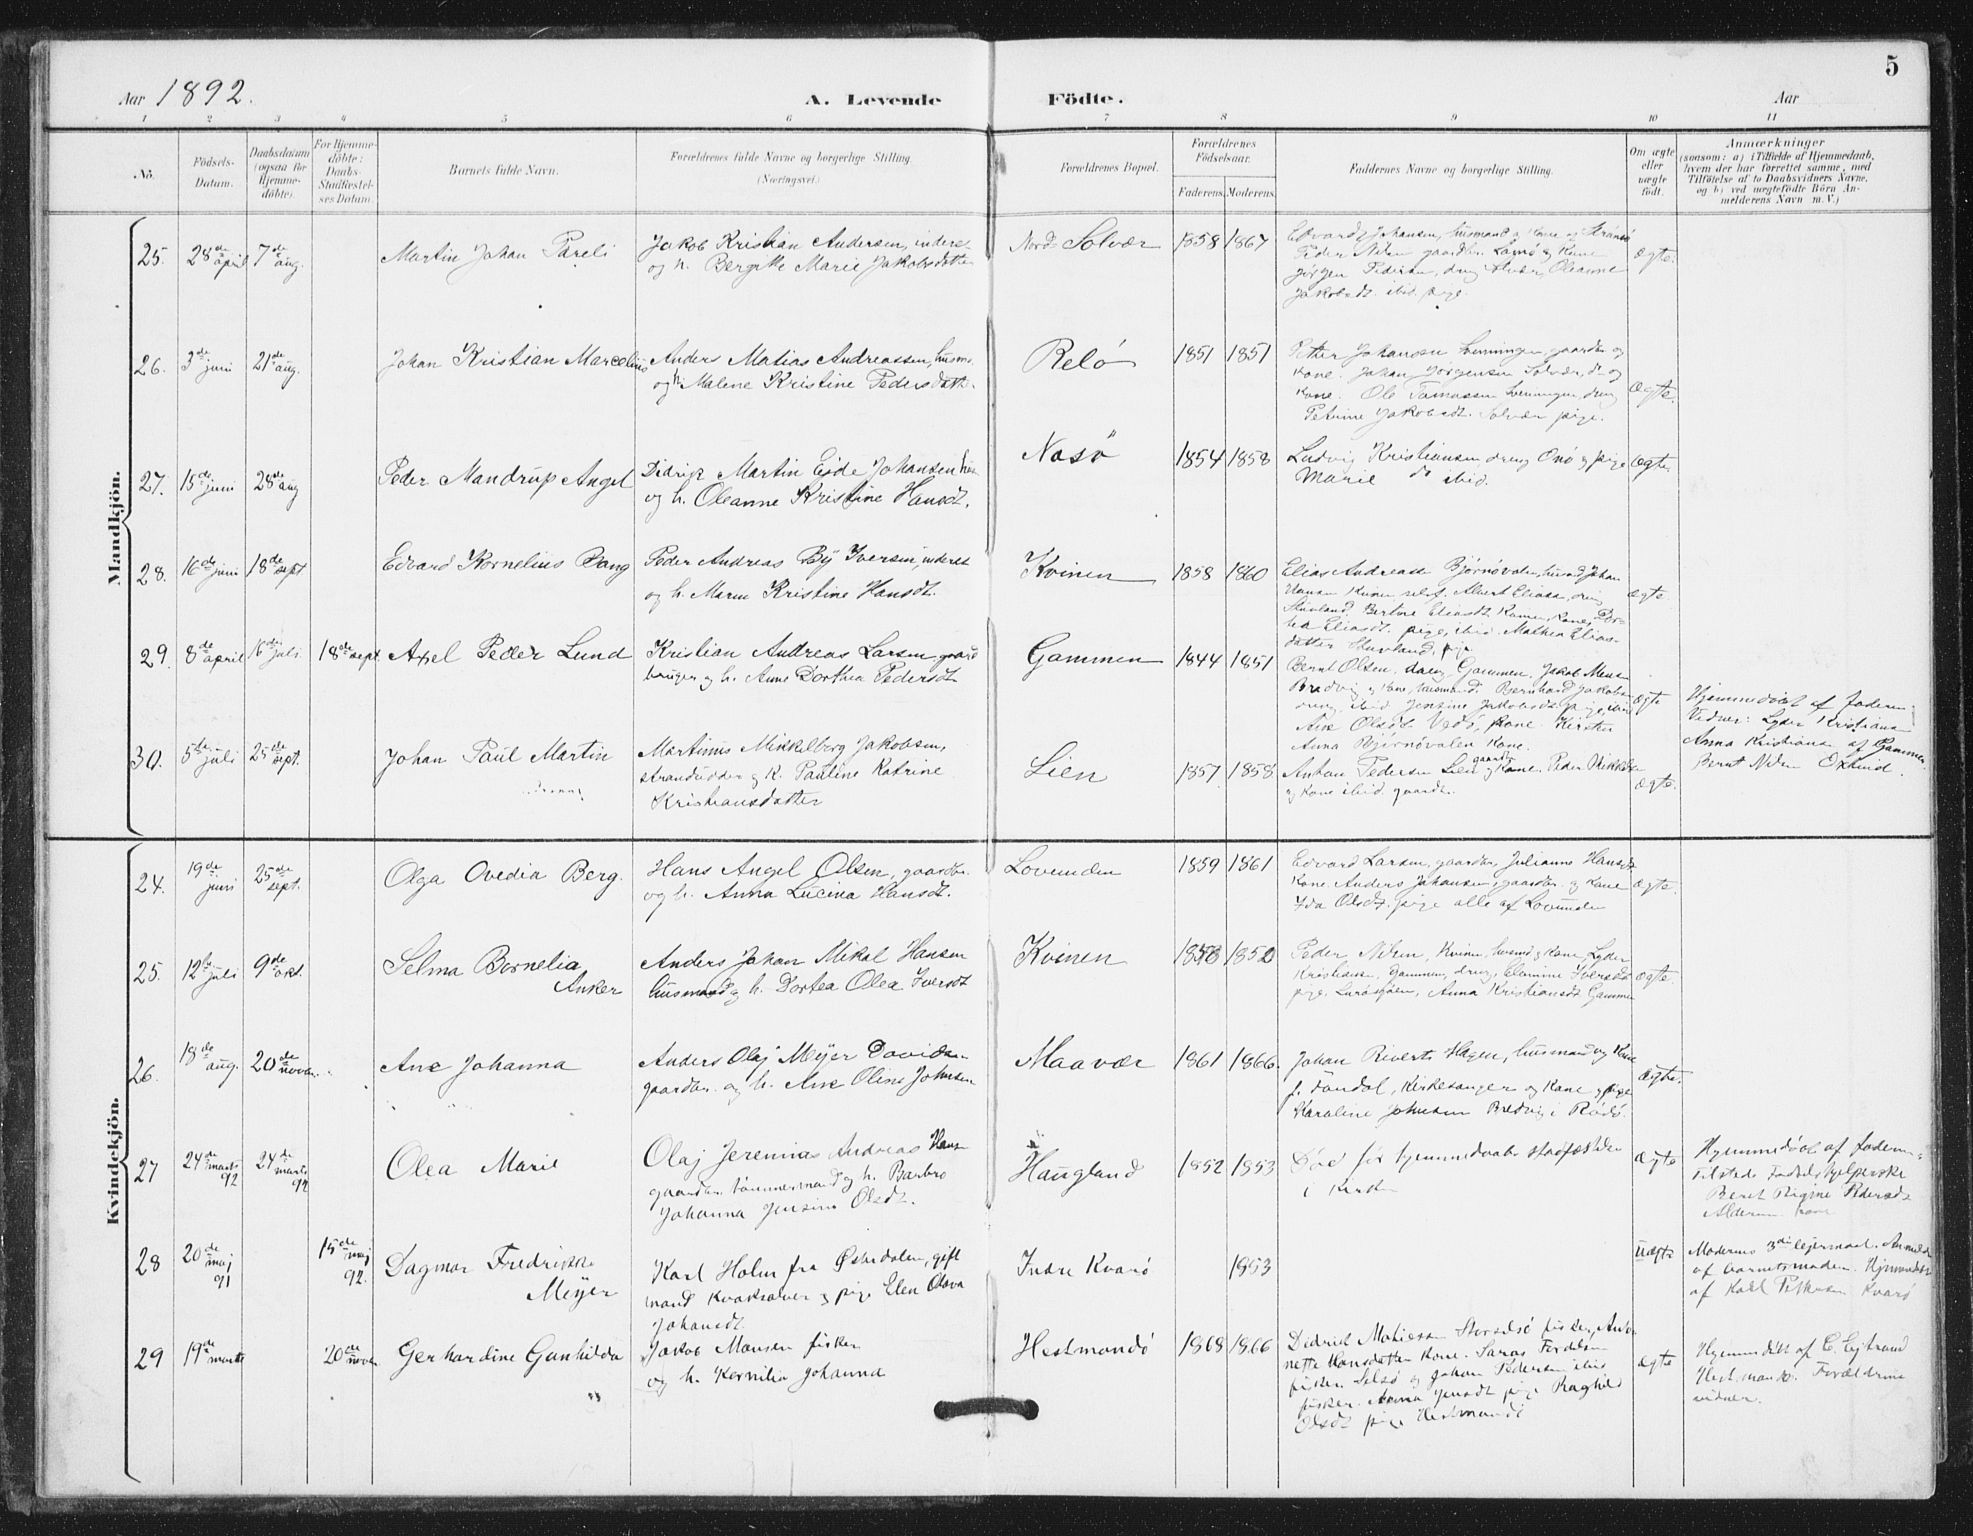 5
Aar 1892.
A. Levende Födte.
Aar
1 2 3 4 5 6 7 8 9 10 11
No.
Födsels-Datum.
Daabsdatum (ogsaa for Hjemme-döbte).
For Hjemme-döbte: Daabs-Stadfæstel-ses Datum.
Barnets fulde Navn.
Forældrenes fulde Navne og borgerlige Stilling.
(Næringsvei.)
Forældrenes Bopæl.
Forældrenes Födselsaar.
Faderens. Moderens.
Faddernes Navne og borgerlige Stilling.
Om ægte eller uægte födt.
Anmærkninger
(saasom: a) i Tilfælde af Hjemmedaab, hvem der har forrettet samme, med Tilföielse af to Daabsvidners Navne, og b) ved uægtefödte Börn An-melderens Navn m. V.)
Mandkjön.
25. 28de april 7de aug. Martin Johan Pareli
Jakob Kristian Andersen, inderst
og h. Bergitte Marie Jakobsdatter
Nord Solvær 1858 1867
Edvard Johansen, husmand og Kone
Peder Nilsen gaardbr. Kone
Jørgen Pedersen, dreng Oleanne
Jakobsdt. ibid. pige.
ægte.
26. 3de juni 21de aug. Johan Kristian Marcelius
Anders Matias Andreassen, husm.
og h. Malene Kristine Pedersdatter
Relö 1851 1851
Petter Johansen gaardbr. og
Kone. Johan Jørgensen Solvær, do og
Kone. Ole Tomassen dreng
Petrine Jakobsdt. Solvær pige.
ægte.
27. 15de juni 28de aug Peder Mandrup Angel
Didrik Martin Eide Johansen
og h. Oleanne Kristine Hansdt.
Nasö 1854 1858
Ludvig Kristiansen, dreng Onö og pige
Marie do ibid.
ægte
28. 16de juni 18de sept Edvard Kornelius Dang
Peder Andreas By Iversen, inderst
og h. Maren Kristine Hansdt.
Kvinen 1858 1860
Elias Andreassen Bjørnøvalen, husmd Johan
Hansen Kvinen Albert Eliassen, dreng
Stuvland, Bertine Eliasdt. Kvinen, Kone, Dor-
tea Eliasdt. pige, ibid. Mathea Elias-
datter Stuvland, pige
ægte
29. 8de april 16de juli 18de sept. Axel Peder Lund
Kristian Andreas Larsen, gaard
bruger og h. Anne Dorthea Pedersdt.
Gammen 1844 1851
Bernt Olsen, dreng, Gammen, Jakob
Bradvig og Kone, husmand. Bernhard Jakobsen
dreng, ibid. Jensine Jakobsdt. pige, ibid
Ane Olsdt. Kone. Kirsten
Anna Bjørnøvalen Kone.
ægte
Hjemmedöbt af faderen
Vidner: Lyder Kristiansen
Anna Kristiansen af Gammen.
Bernt Nilsen Oxtind.
30. 5te juli 25de sept. Johan Paul Martin
Martinus Mikkelborg Jakobsen,
strandsidder og K. Pauline Katrine
Kristiansdatter
Lien 1857 1858
Anton Pedersen Lien gaardbr. og Kone. Peder Mikkelsen
og Kone ibid. gaardbr.
ægte.
Kvindekjön.
24. 19de juni 25de sept. Olga Ovedia Berg.
Hans Angel Olsen, gaardbr.
og h. Anna Lucina Hansdt.
Lovunden 1859 1861
Edvard Larsen, gaardbr. Julianne Hansdt.
Kone. Anders Johansen, gaardbr. og Kone
Ida Olsdt. pige alle af Lovunden
ægte.
25. 12te juli 9de okt. Selma Bornelia
Anker
Anders Johan Mikal Hansen
husmand og h. Dortea Olea Iversdt
Kvinen 1850
Peder Nilsen, Kvinen, husmd og Kone, Lyder
Kristiansen, Gammen, dreng, Iversdt
pige, Lurösjöen, Anna Kristiansdt Gammen
ægte.
26. 18de aug. 20de novbr. Ane Johanna
Anders Olaj Meyer Davidsen
gaardbr. og h. Ane Oline Johnsen
Maavær 1861 1866.
Johan Rivertz Hagen, husmand og Kone
J. Döndal, Kirkesanger og Kone, og pige
Karoline Johnsen Bredvig i Rödö.
ægte.
27 24de marts 92 24de marts 92 Olea Marie
Olaj Jeremias Andreas Hans
gaardbr. tömmermand og h. Barbro
Johanna Jensine Olsdt.
Haugland 1852 1853
Död för hjemmedaabs stadfæstelse
i Kirken
ægte
Hjemmedöbt af faderen,
tilstede Fodselshjelperske
Beret Regine Pedersdt
Alderen Kone
28 20de maj 91 15de maj 92. Dagmar Fredrikke
Meÿer
Karl Holm fra Østerdalen, gift
mand Kvaksalver og pige Elen Olava
Johansdt.
Indre Kvarö 1853
uægte
Moderens 3de lejermaal. Anmeldt
af barnets moder. Hjemmedöbt
af Karl Petersen Kvarö
29 19de marts 20de novbr Gerhardine Gunhilda
Jakob Monsen fisker
og h. Kornilia Johanna
Hestmandö 1868 1866
Didrik Mathiessen Storselsö fisker,
nette Hansdatter Kone. Saras
fisker. Selsö og Johan Pedersen ibid
fisker. Anna Jensdt pige Raghild
Olsdt pige Hestmandö
ægte
Hjemmedöbt af E. Ejtrand
Hestmandö. Forældrene
vidner.